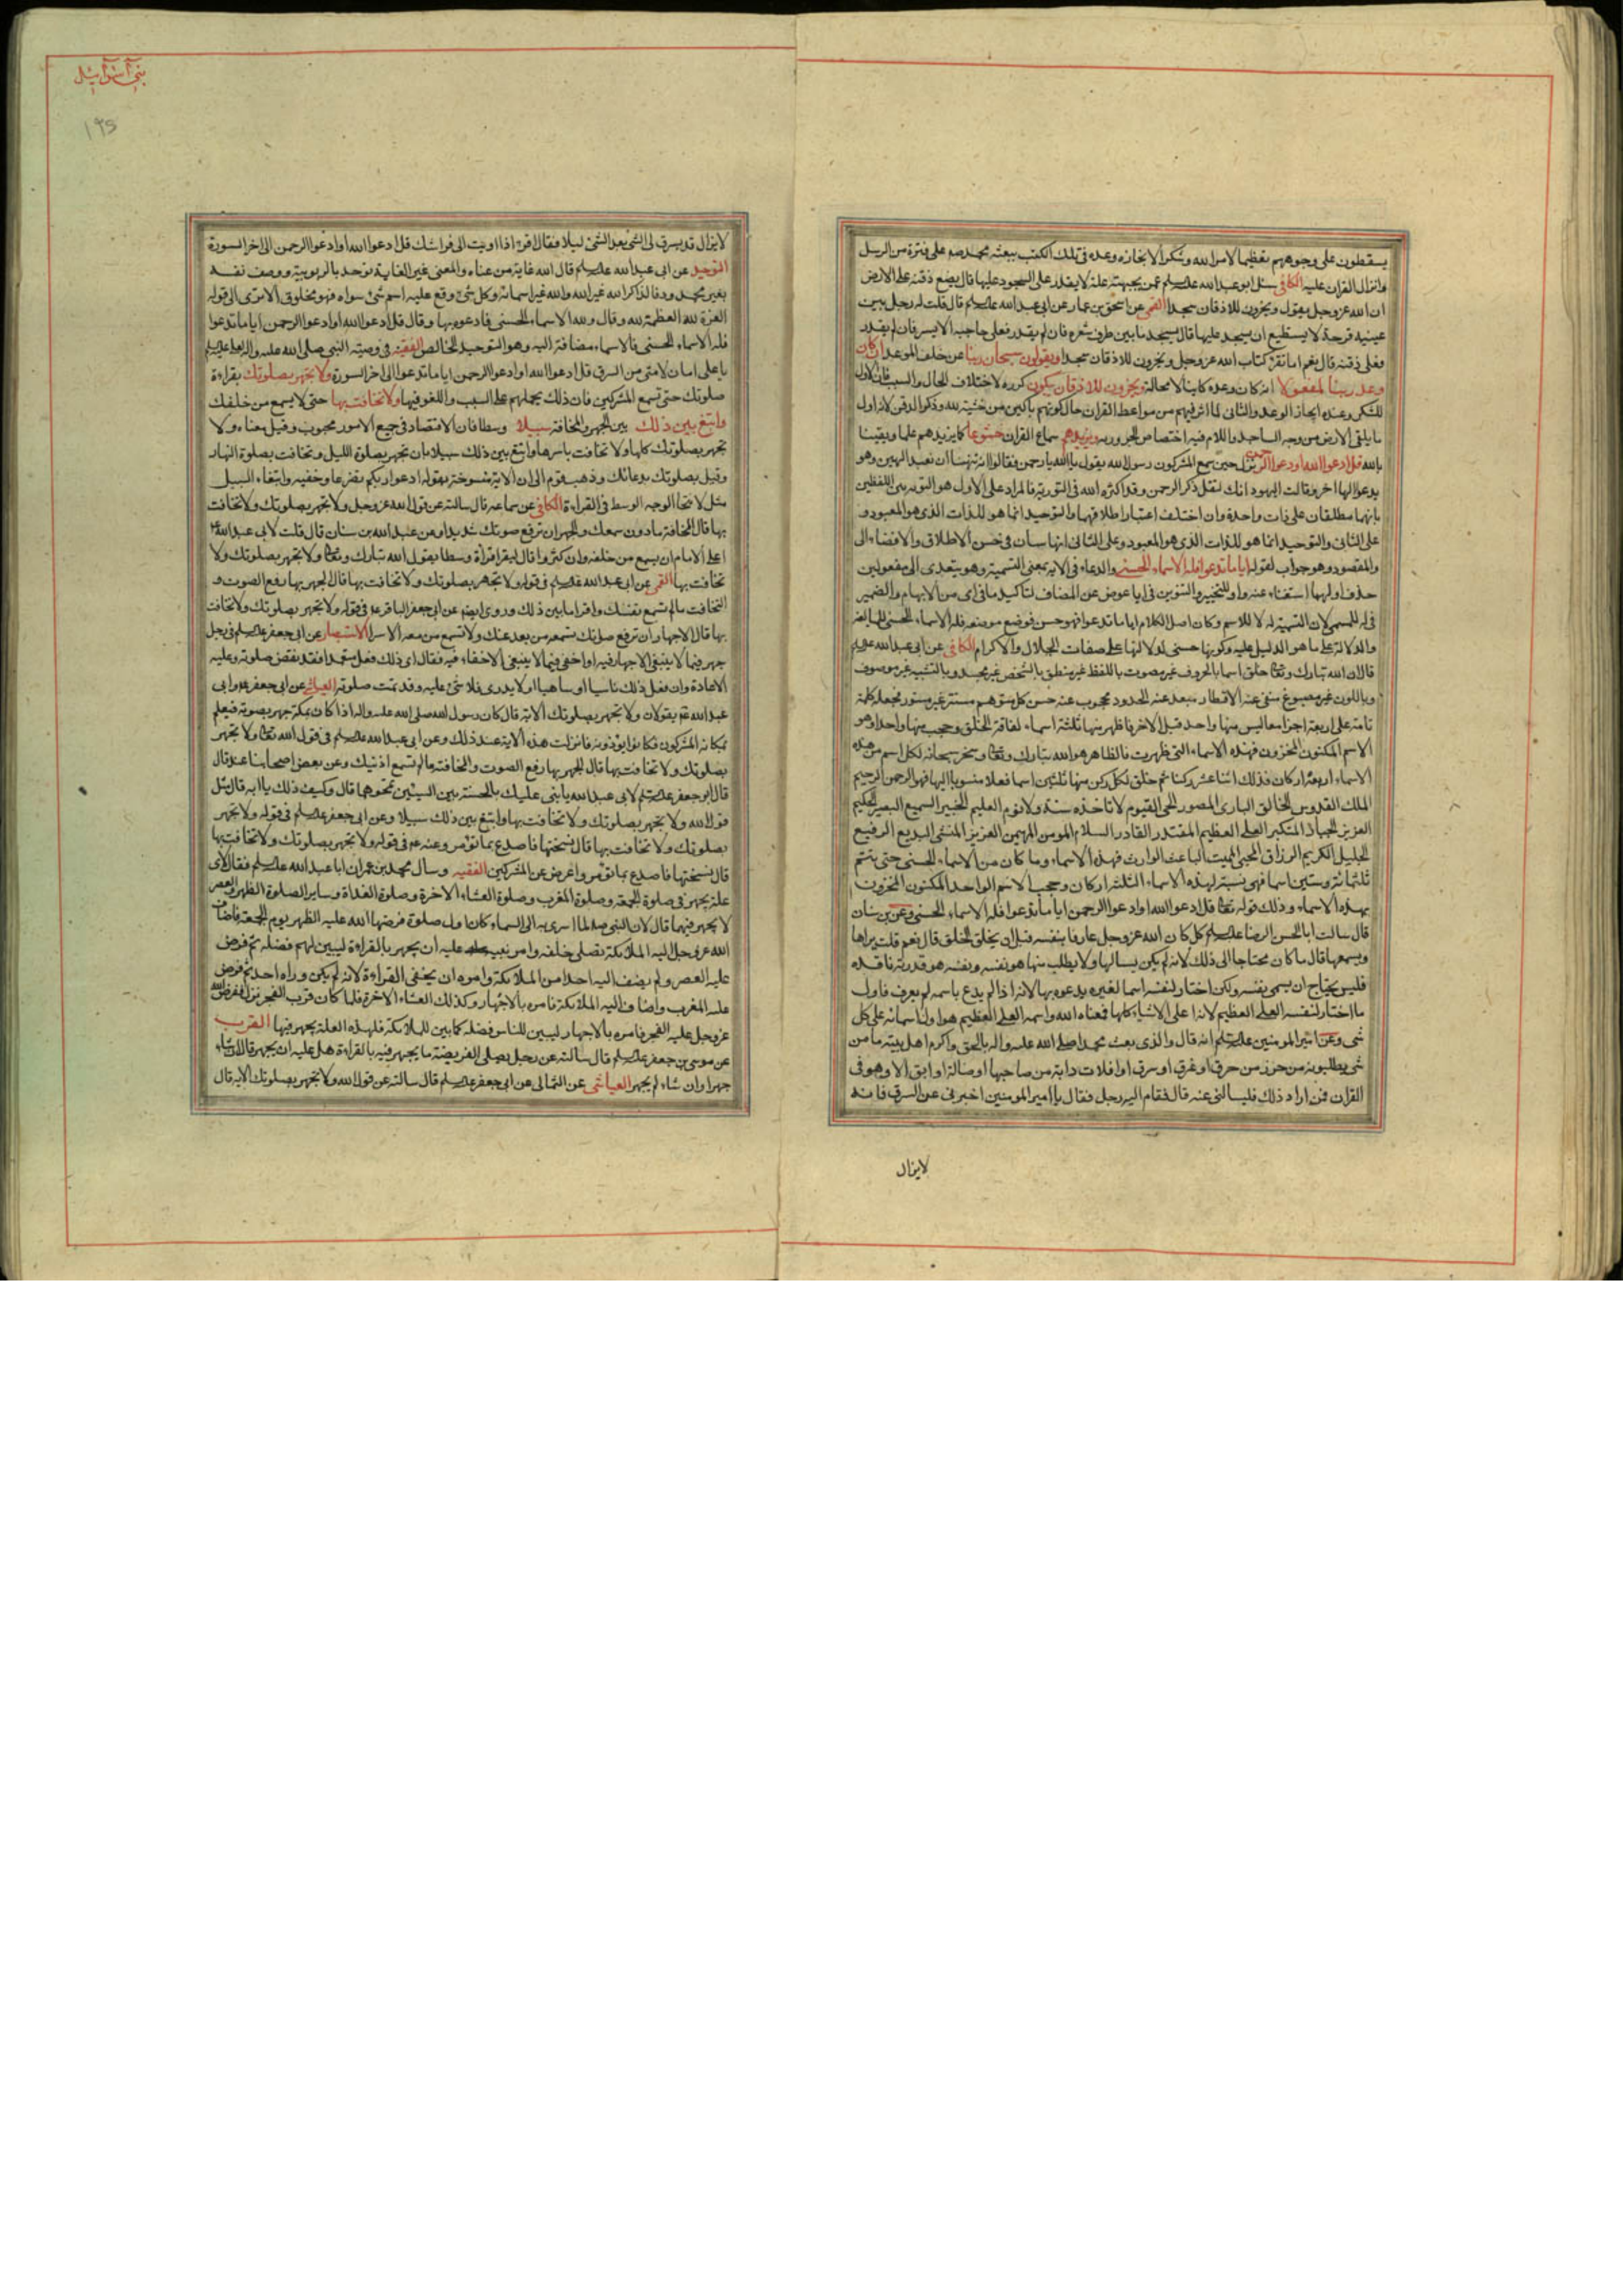 يسقطون على وجوههم تعظيما لامر الله وشكرا لانجازه وعده فى تلك الكتب ببعثه محمد صم على فترة من الرسل
وانزال القران عليه الكافى سئل ابو عبد الله علیه السلم عمن بجبهته علة لا يقدر على السجود عليها قال يضع ذقنه على الارض
ان الله عز وجل يقول ويخرون للاذقان سجدا القمى عن اسحق بن عمار عن ابى عبد الله علیه السلم قال قلت له رجل بين
عينيه قرحة لا يستطيع ان يسجد عليها قال يسجد ما بين طرف شعره فان لم يقدر فعلى حاجبه الايسر فان لم يقدر
فعلى ذقنه قال نعم اما تقرء كتاب الله عز وجل ويخرون للاذقان سجدا ويقولون سبحان ربنا عن خلف الموعد ان كان
وعد ربنا لمفعولا انه كان وعده كاينا لا محالة ويخرون للاذقان يبكون كرره لاختلاف الحال والسبب فان الاول
للشكر وعند انجاز الوعد والثانى لما اثر فيهم من مواعظ القران حال كونهم باكين من خشية الله وذكر الذقن لانه اول
ما يلقى الارض من وجه الساجد واللام فيه لاختصاص الخرور به ويزيدهم سماع القران خشوعا كما يزيدهم علما ويقينا
بالله قل ادعوا الله او دعوا الرحمن نزل حين سمع المشركون رسول الله يقول يا الله يا رحمن فقالوا انه ينهانا ان نعبد الهين وهو
يدعو الها اخر وقالت اليهود انك لتقل ذكر الرحمن وقد اكثره الله فى التورية فالمراد على الاول هو التسوية بين اللفظين
بانهما يطلقان على ذات واحدة وان اختلف اعتبار اطلاقهما والتوحيد انما هو للذات الذى هو المعبود و
على الثانى والتوحيد انما هو للذات الذى هو المعبود وعلى الثانى انهما سيان فى حسن الاطلاق والافضاء الى
والمقصود وهو جواب لقوله اياما تدعوا فله الاسماء الحسنى والدعاء فى الاية بمعنى التسمية وهو يتعدى الى مفعولين
حذف اولهما استغناء عنه واو للتخيير والتنوين فى ايا عوض عن المضاف لتاكيد ما فى اى من الابهام والضمير
فى له للمسمى لان التسمية له لا للاسم وكان اصل الكلام اياما تدعوا فهو حسن فوضع موضعه فله الاسماء الحسنى للمبالغة
والدلالة على ما هو الدليل عليه وكونها حسنى لدلالتها على صفات الجلال والاكرام الكافى عن ابى عبد الله علیه السلم
قال ان الله تبارك وتعالى خلق اسما بالحروف غير مصوت باللفظ غير منطق بالشخص غير مجسد وبالتشبيه غير موصوف
وباللون غير مصبوغ منفى عنه الاقطار مبعد عنه الحدود محجوب عنه حس كل متوهم مستتر غير مستور فجعله كلمة
تامة على اربعة اجزا معا ليس منها واحد قبل الاخر فاظهر منها ثلثة اسماء لفاقة الخلق وحجب منها واحدا وهو
الاسم المكنون المخزون فهذه الاسماء التى ظهرت فالظاهر هو الله تبارك وتعالى وسخر سبحانه لكل اسم من هذه
الاسماء اربعة اركان فذلك اثنا عشر ركنا ثم خلق لكل ركن منها ثلثين اسما فعلا منسوبا اليها فهو الرحمن الرحيم
الملك القدوس الخالق البارى المصور الحى القيوم لا تاخذه سنة ولا نوم العليم الخبير السميع البصير الحكيم
العزيز الجبار المتكبر العلى العظيم المقتدر القادر السلام المومن المهيمن العزيز المنشى البديع الرفيع
الجليل الكريم الرزاق المحيى المميت الباعث الوارث فهذه الاسماء وما كان من الاسماء الحسنى حتى يتم
ثلثمائة وستين اسما فهى نسبة لهذه الاسماء الثلثة اركان وحجب الاسم الواحد المكنون المخزون
بهذه الاسماء وذلك قوله تعالى قل ادعوا الله او ادعوا الرحمن اياما تدعوا فله الاسماء الحسنى وعن بن سنان
قال سالت ابا الحسن الرضا علیه السلم كل كان الله عز وجل عارفا بنفسه قبل ان يخلق الخلق قال نعم قلت يراها
ويسمعها قال ما كان محتاجا الى ذلك لانه لم يكن يسالها ولا يطلب منها هو نفسه ونفسه هو قدرته نافذه
فليس يحتاج ان يسمى نفسه ولكن اختار لنفسه اسما لغيره يدعوه بها لانه اذا لم يدع باسمه لم يعرف فاول
ما اختار لنفسه العلى العظيم لانه اعلى الاشياء كلها فمعناه الله واسمه العلى العظيم هو اول اسمائه على كل
شى وعن امير المومنين علیه السلم انه قال والذى بعث محمدا صلى الله عليه واله بالحق واكرم اهل بيته ما من
شى يطلبونه من حرز من حرق او غرق او سرق او افلات دابة من صاحبها او ضالة او ابق الا وهو فى
القران فمن اراد ذلك فليسالنى عنه قال فقام اليه رجل فقال يا امير المومنين اخبرنى عن السرق فانه
لايزال
بنى اسرآئيل
١٩٥
لايزال قد يسرق لى الشئ بعد الشئ ليلا فقال اقرء اذا اويت الى فراشك قل ادعوا الله او ادعوا الرحمن الى اخر السورة
التوحيد عن ابى عبد الله علیه السلم قال الله غاية من غاياه والمعنى غير الغاية توحد بالربوبية ووصف نفسه
بغير محدودية فالذاكر الله غير الله والله غير اسمائه وكل شئ وقع عليه اسم شئ سواه فهو مخلوق الا ترى الى قوله
العزة لله العظمة لله وقال ولله الاسماء الحسنى فادعوه بها وقال قل ادعوا الله او ادعوا الرحمن اياما تدعوا
فله الاسماء الحسنى فالاسماء مضافة اليه وهو التوحيد الخالص الفقيه فى وصية النبى صلى الله عليه واله لعلى علیه السلم
يا على امان لامتى من السرق قل ادعوا الله او ادعوا الرحمن اياما تدعوا الى اخر السورة ولا تجهر بصلوتك بقراءة
صلوتك حتى تسمع المشركين فان ذلك يحملهم على السب واللغو فيها ولا تخافت بها حتى لا يسمع من خلفك
وابتغ بين ذلك بين الجهر والمخافة سبيلا وسطا فان الاقتصاد فى جميع الامور محبوب وقيل معناه ولا
تجهر بصلوتك كلها ولا تخافت باسرها وابتغ بين ذلك سبيلا بان تجهر بصلوة الليل وتخافت بصلوة النهار
وقيل بصلوتك بدعائك وذهب قوم الى ان الاية منسوخة بقوله ادعوا ربكم تضرعا وخفيه وابتغاء السبيل
مثل لانتحا الوجه الوسط فى القراءة الكافى عن سماعه قال سالته عن قول الله عز وجل ولا تجهر بصلوتك ولا تخافت
بها قال المخافتة ما دون سمعك والجهر ان ترفع صوتك شديدا وعن عبد الله بن سنان قال قلت لابى عبد الله
اعلى الامام ان يسمع من خلفه وان كثروا قال ليقرا قراءة وسطا يقول الله تبارك وتعالى ولا تجهر بصلوتك ولا
تخافت بها القمى عن ابى عبد الله علیه السلم فى قوله ولا تجهر بصلوتك ولا تخافت بها قال الجهر بها رفع الصوت و
التخافت ما لم تسمع نفسك واقرا ما بين ذلك وروى ايضا عن ابى جعفر الباقر ع فى قوله ولا تجهر بصلوتك ولا تخافت
بها قال الاجهار ان ترفع صوتك تسمعه من بعد عنك ولا تسمع من معه الا سرا الاستبصار عن ابى جعفر علیه السلم فى رجل
جهر فيما لا ينبغى الاجهار فيه او اخفى فيما لا ينبغى الاخفاء فيه فقال اى ذلك فعل متعمدا فقد نقض صلوته وعليه
الاعادة وان فعل ذلك ناسيا او ساهيا او لا يدرى فلا شئ عليه وقد تمت صلوته العياشى عن ابى جعفر ع وابى
عبد الله ع يقولان ولا تجهر بصلوتك الاية قال كان رسول الله صلى الله عليه واله اذا كان بمكة جهر بصوته فيعلم
بمكانه المشركون فكانوا يؤذونه فانزلت هذه الاية عند ذلك وعن ابى عبد الله علیه السلم فى قول الله تعالى ولا تجهر
بصلوتك ولا تخافت بها قال الجهر بها رفع الصوت والمخافتة ما لم تسمع اذنيك وعن بعض اصحابنا عنه قال
قال ابو جعفر علیه السلم لابى عبد الله يا بنى عليك بالحسنة بين السيئتين تمحوهما قال وكيف ذلك يا ابه قال مثل
قول الله ولا تجهر بصلوتك ولا تخافت بها وابتغ بين ذلك سبيلا وعن ابى جعفر علیه السلم فى قوله ولا تجهر
بصلوتك ولا تخافت بها قال نسختها فاصدع بما تؤمر وعنه ع فى قوله ولا تجهر بصلوتك ولا تخافت بها
قال نسختها فاصدع بما تؤمر واعرض عن المشركين الفقيه وسال محمد بن عمران ابا عبد الله علیه السلم فقال لاى
علة يجهر فى صلوة الجمعة وصلوة المغرب وصلوة العشاء الاخرة وصلوة الغداة وساير الصلوة الظهر والعصر
لا يجهر فيهما قال لان النبى ص لما اسرى به الى السماء كان اول صلوة فرضها الله عليه الظهر يوم الجمعة فاضاف
الله عز وجل اليه الملائكة تصلى خلفه وامر نبيه عليه ان يجهر بالقراءة ليبين لهم فضله ثم فرض
عليه العصر ولم يضف اليه احدا من الملائكة وامره ان يخفى القراءة لانه لم يكن وراه احد ثم فرض
عليه المغرب واضاف اليه الملائكة فامره بالاجهار وكذلك العشاء الاخرة فلما كان قرب الفجر نزل ففرض الله
عز وجل عليه الفجر فامره بالاجهار ليبين للناس فضله كما بين للملائكة فلهذه العلة يجهر فيها القرب
عن موسى بن جعفر علیه السلم قال سالته عن رجل يصلى الفريضة ما يجهر فيه بالقراءة هل عليه ان يجهر قال ان شاء
جهر وان شاء لم يجهر العياشى عن الثمالى عن ابى جعفر علیه السلم قال سالته عن قول الله ولا تجهر بصلوتك الاية قال